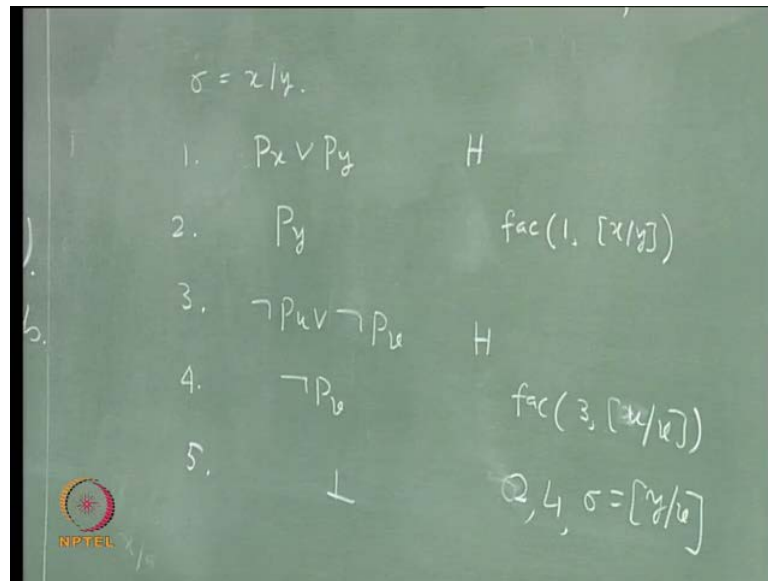 σ = x/y.
1. Px ∨ Py H
2. Py fac(1, [x/y])
3. ¬Pu ∨ ¬Pv H
4. ¬Pv fac(3, [u/v])
5. ⊥ 2, 4, σ = [y/v]
).
b.
NPTEL